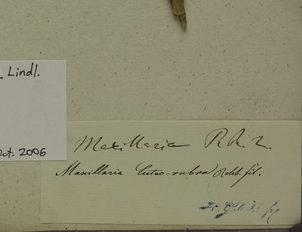 Lindl.
Oct. 2006
Maxillaria R. &
Maxillaria luteo-rubra Rchb fil.